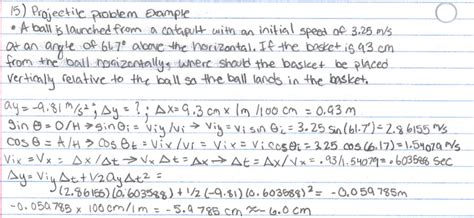 15) Projectile problem Example
• A ball is launched from a catapult with an initial speed of 3.25 m/s
at an angle of 61.7° above the horizontal. If the basket is 93 cm
from the ball horizontally, where should the basket be placed
vertically relative to the ball so the ball lands in the basket.
ay = -9.81 m/s²; Δy = ?; Δx = 93 cm × 1m/100 cm = 0.93 m
Sin θ = O/H → sin θi = Viy/Vi → Viy = Vi sin θi = 3.25 sin(61.7°) = 2.86155 m/s
Cos θ = A/H → Cos θi = Vix/Vi = Vix = Vi cos θi = 3.25 cos(61.7) = 1.54079 m/s
Vix = Vx = Δx/Δt → Vx Δt = Δx → Δt = Δx/Vx = .93/1.54079 = .603588 sec
Δy = Viy Δt + 1/2 ay Δt² =
(2.86155)(0.603588) + 1/2 (-9.81)(0.603588)² = -0.059785m
-0.059785 × 100cm/1m = -5.9785 cm ≈ -6.0 cm